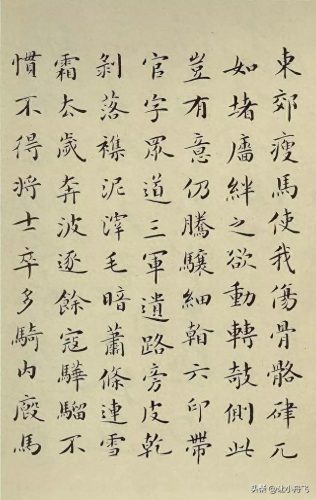 東郊瘦馬使我傷骨骼硉兀
如堵牆絆之欲動轉欹側此
豈有意仍騰驤細看六印帶
官字眾道三軍遺路旁皮乾
剝落雜泥滓毛暗蕭條連雪
霜去歲奔波逐餘寇驊騮不
慣不得將士卒多騎內廄馬
头条